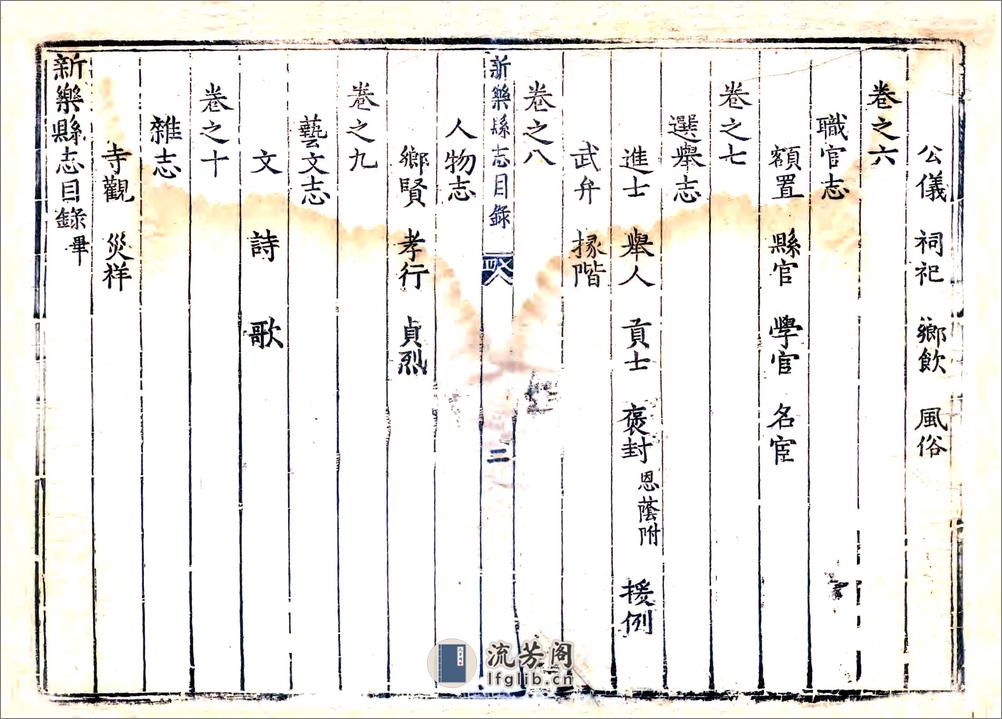 公儀 祠祀 鄉飲 風俗
卷之六
職官志
額置 縣官 學官 名宦
卷之七
選舉志
進士 舉人 貢士 褒封 恩蔭附 援例
武弁 掾階
新樂縣志目錄 二
卷之八
人物志
鄉賢 孝行 貞烈
卷之九
藝文志
文 詩 歌
卷之十
雜志
寺觀 災祥
新樂縣志目錄畢
流芳阁
lfglib.cn